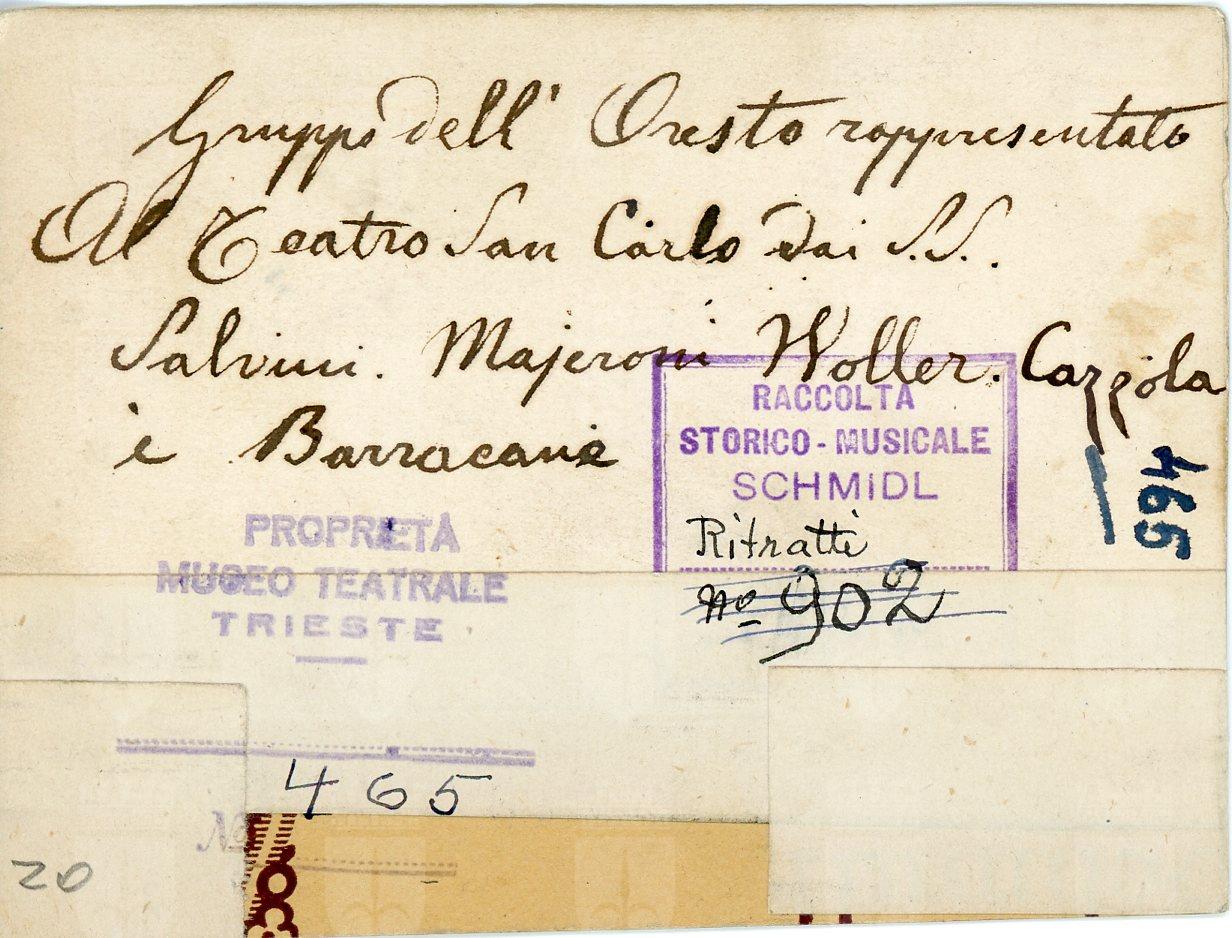 Gruppo dell' Oresto rappresentato
Al Teatro San Carlo dai S.S.
Salvini. Majeroni Woller. Cazzola
è Barracane
RACCOLTA
STORICO-MUSICALE
SCHMIDL
Ritratti
No 902
465
PROPRIETÀ
MUSEO TEATRALE
TRIESTE
465
No
20